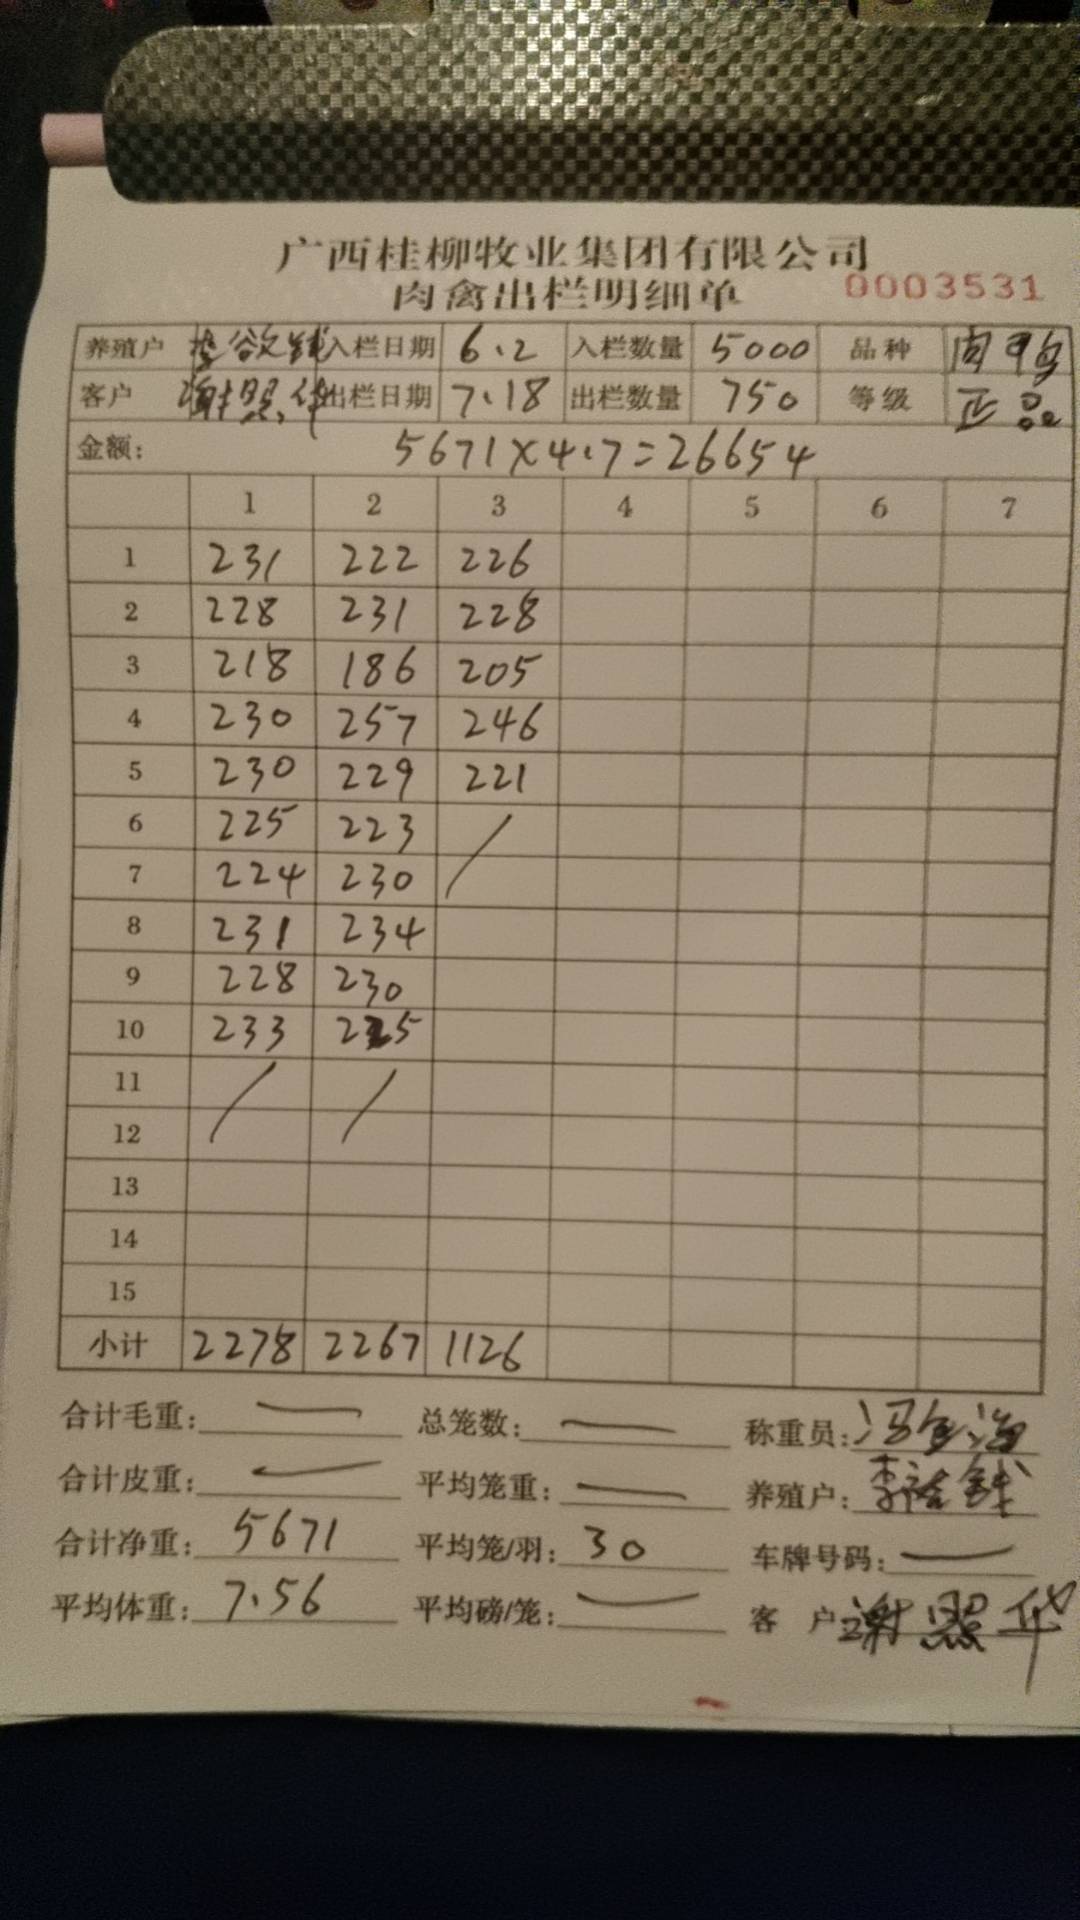 广西桂柳牧业集团有限公司
肉禽出栏明细单 0003531
养殖户 入栏日期 6.2 入栏数量 5000 品种 肉鸭
客户 出栏日期 7.18 出栏数量 750 等级 正品
金额: 5671×4.7=26654
1 2 3 4 5 6 7
1 231 222 226
2 228 231 228
3 218 186 205
4 230 257 246
5 230 229 221
6 225 223 /
7 224 230
8 231 234
9 228 230
10 233 225
11 / /
12
13
14
15
小计 2278 2267 1126
合计毛重: — 总笼数: — 称重员:
合计皮重: — 平均笼重: — 养殖户: 李
合计净重: 5671 平均笼/羽: 30 车牌号码: —
平均体重: 7.56 平均磅/笼: — 客户 谢照华